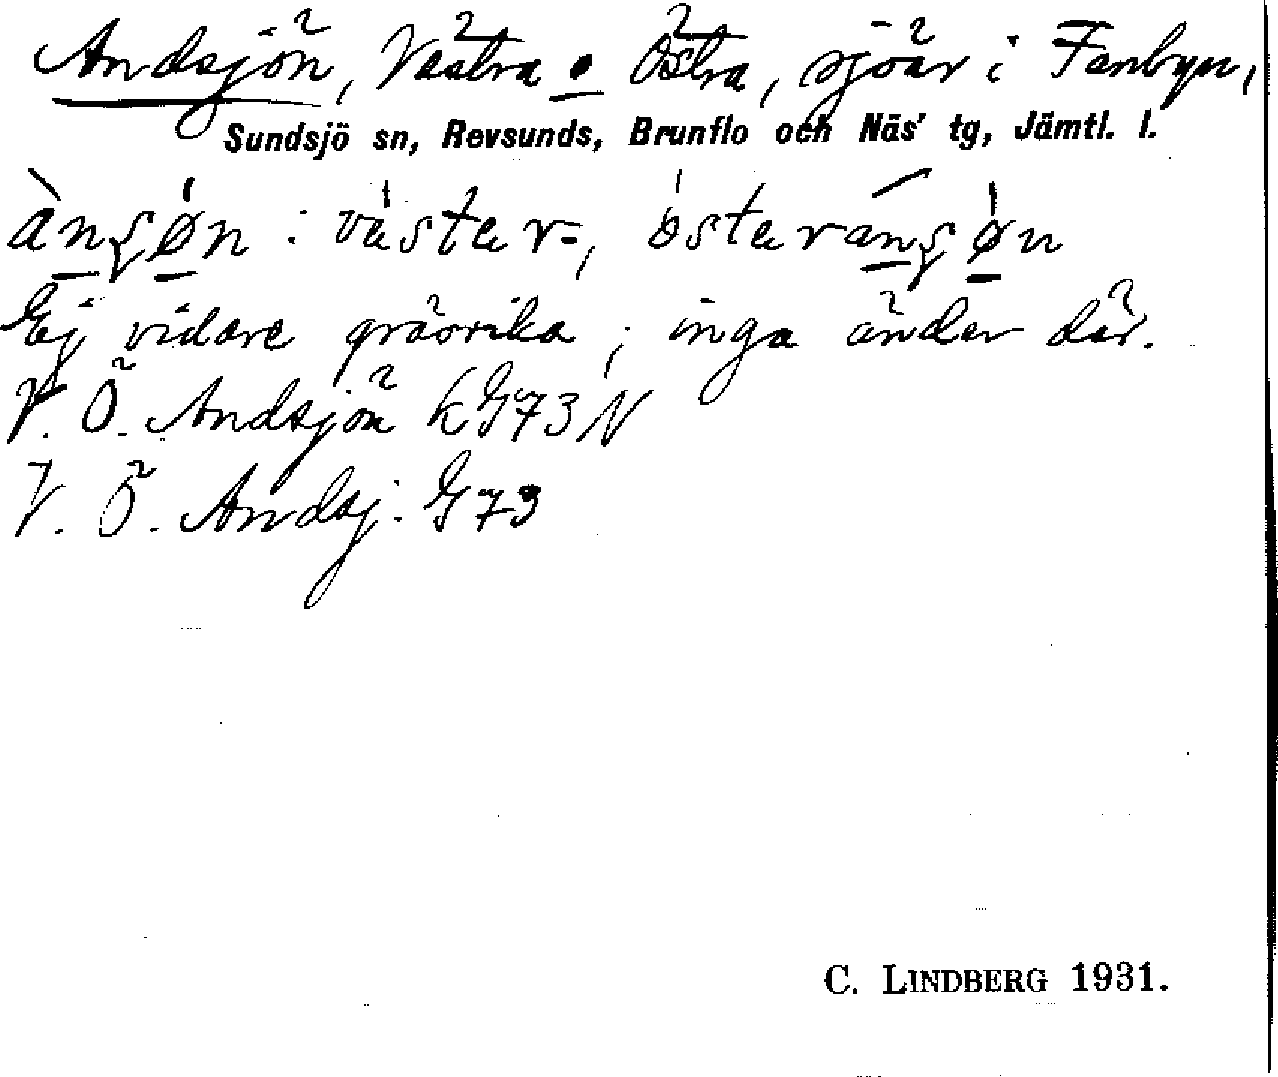 Andsjön, Västra o Östra, sjöar i Fanbyn,
Sundsjö sn, Revsunds, Brunflo och Näs' tg, Jämtl. l.
ànʃøn : väster-, österanʃøn
Ej vidare gräsrika ; inga änder där.
V. Ö. Andsjön kG73N
V. Ö. Andsj. G73
C. LINDBERG 1931.